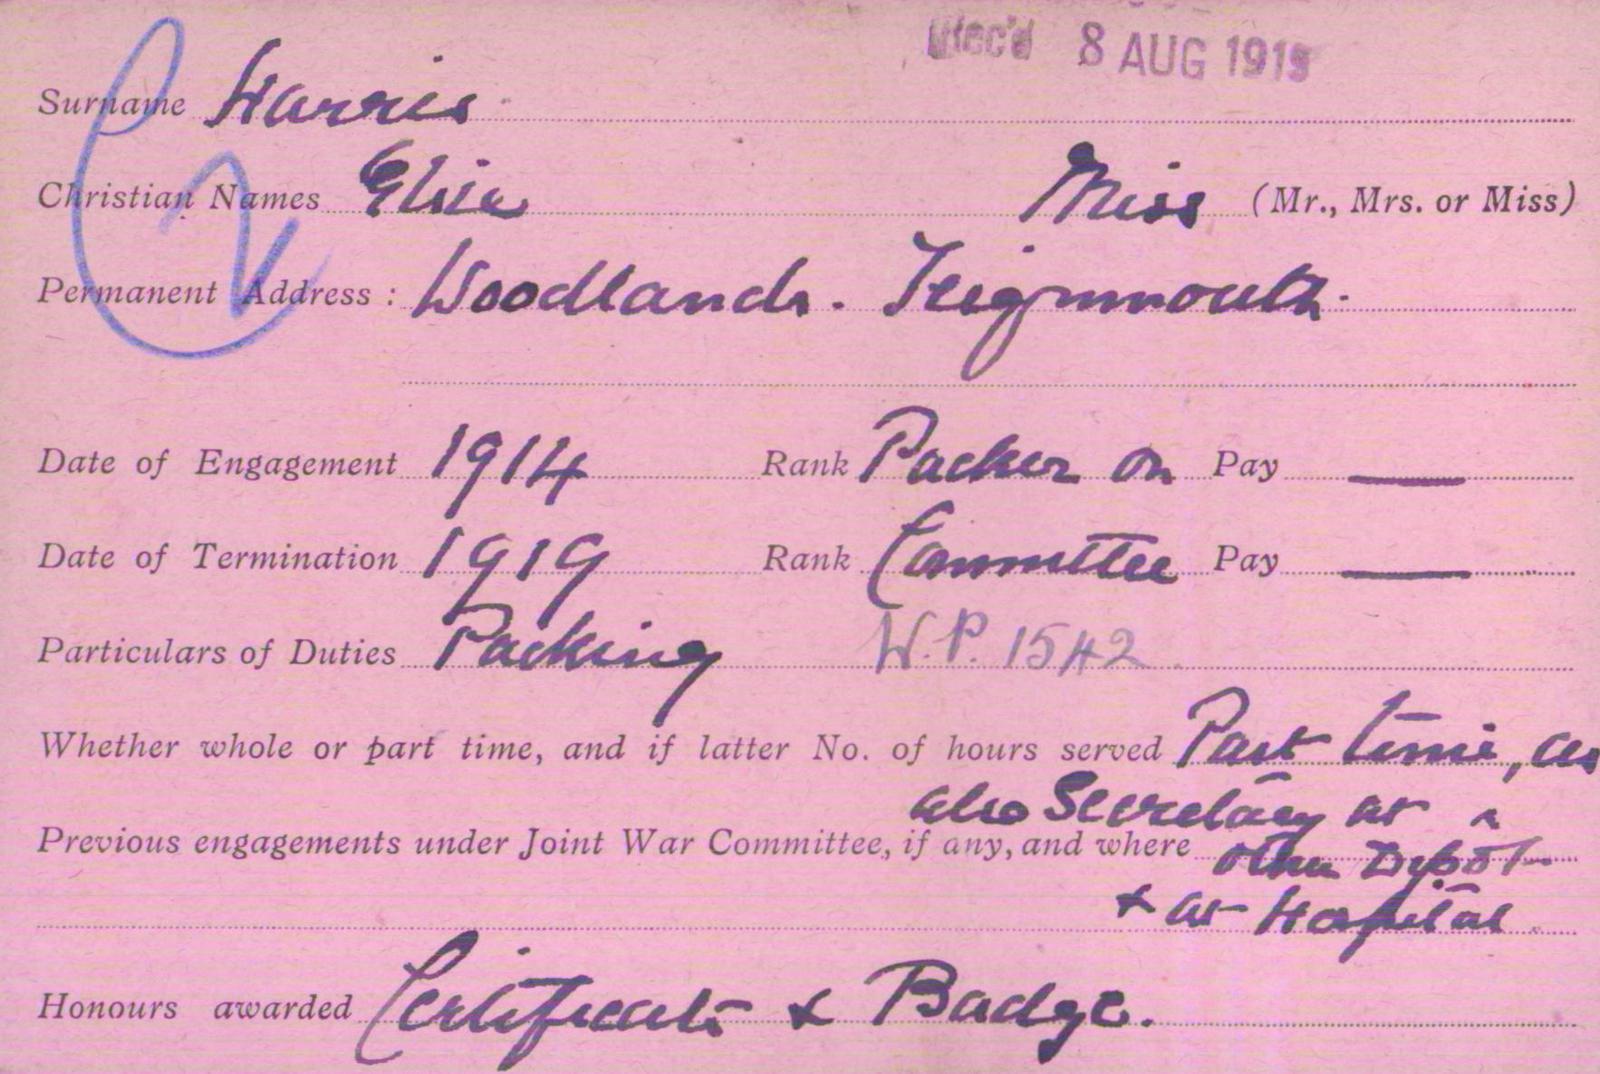 Rec'd 8 AUG 1919
Surname Harris
Christian Names Elsie Miss (Mr., Mrs. or Miss)
Permanent Address : Woodlands. Teignmouth.
Date of Engagement 1914 Rank Packer on Pay —
Date of Termination 1919 Rank Committee Pay —
Particulars of Duties Packing W.P. 1542
Whether whole or part time, and if latter No. of hours served Part time, as
also Secretary at
Previous engagements under Joint War Committee, if any, and where other Depôt
& at Hospital.
Honours awarded Certificate & Badge.